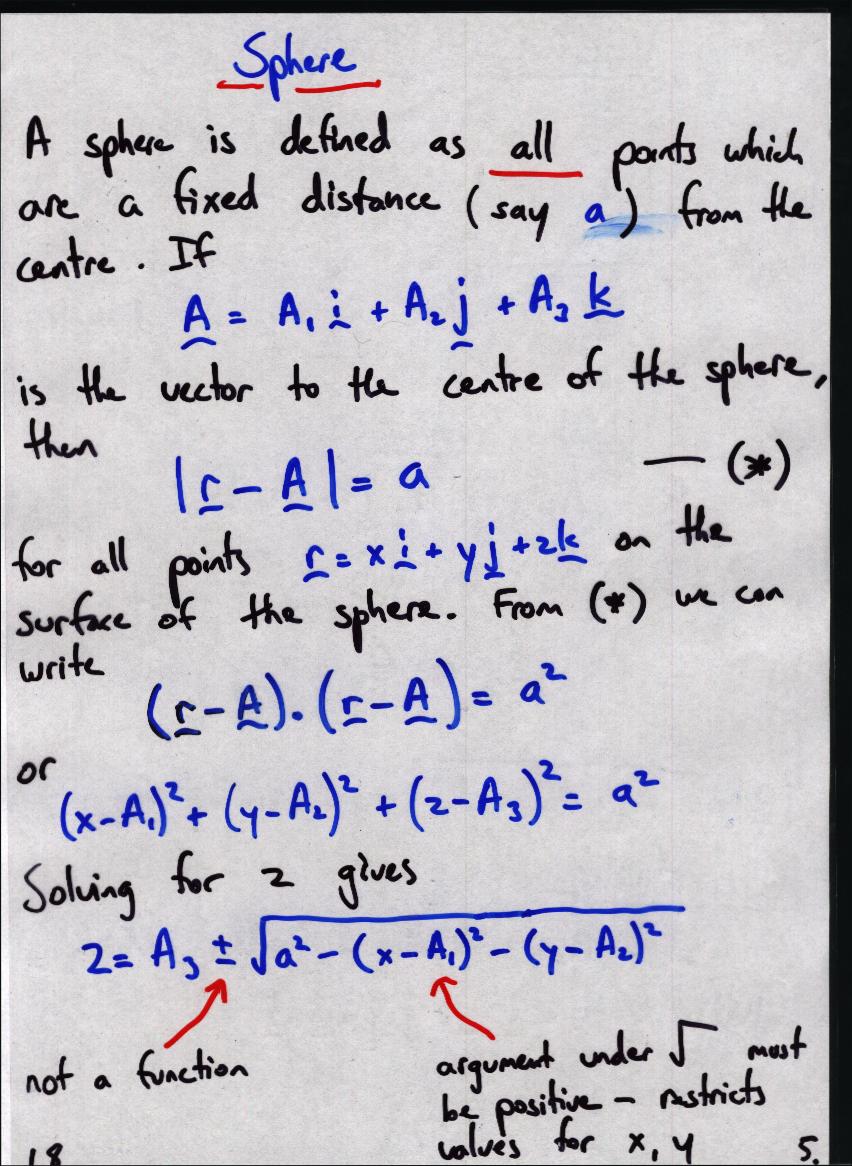 Sphere
A sphere is defined as all points which
are a fixed distance (say a) from the
centre. If
A = A₁ i + A₂ j + A₃ k
is the vector to the centre of the sphere,
then
|r - A| = a — (*)
for all points r = x i + y j + z k on the
surface of the sphere. From (*) we can
write
(r - A) . (r - A) = a²
or
(x - A₁)² + (y - A₂)² + (z - A₃)² = a²
Solving for z gives
z = A₃ ± √a² - (x - A₁)² - (y - A₂)²
not a function
argument under √ must
be positive – restricts
values for x, y
18
5.